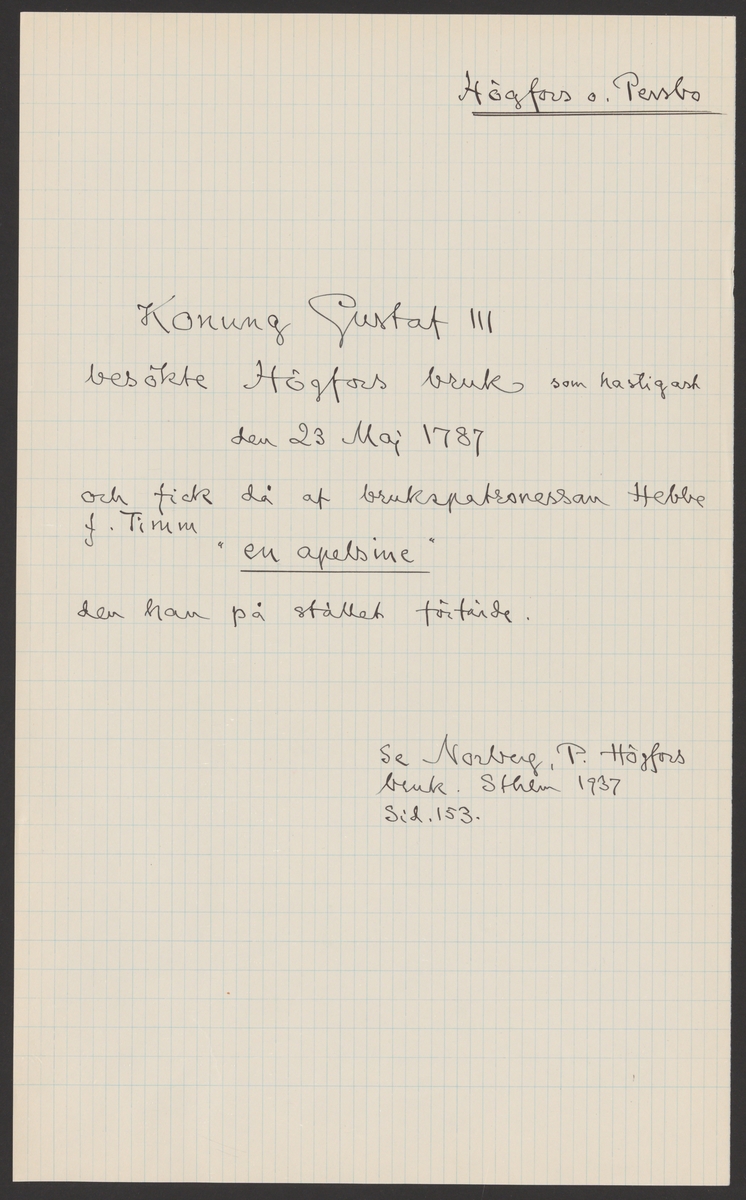 Högfors o. Persbo
Konung Gustaf III
besökte Högfors bruk som hastigast
den 23 Maj 1787
och fick då af brukspatronessan Hebbe
f. Timm
"en apelsine"
den han på stället förtärde.
Se Norberg, P. Högfors
bruk. Sthlm 1937
Sid. 153.